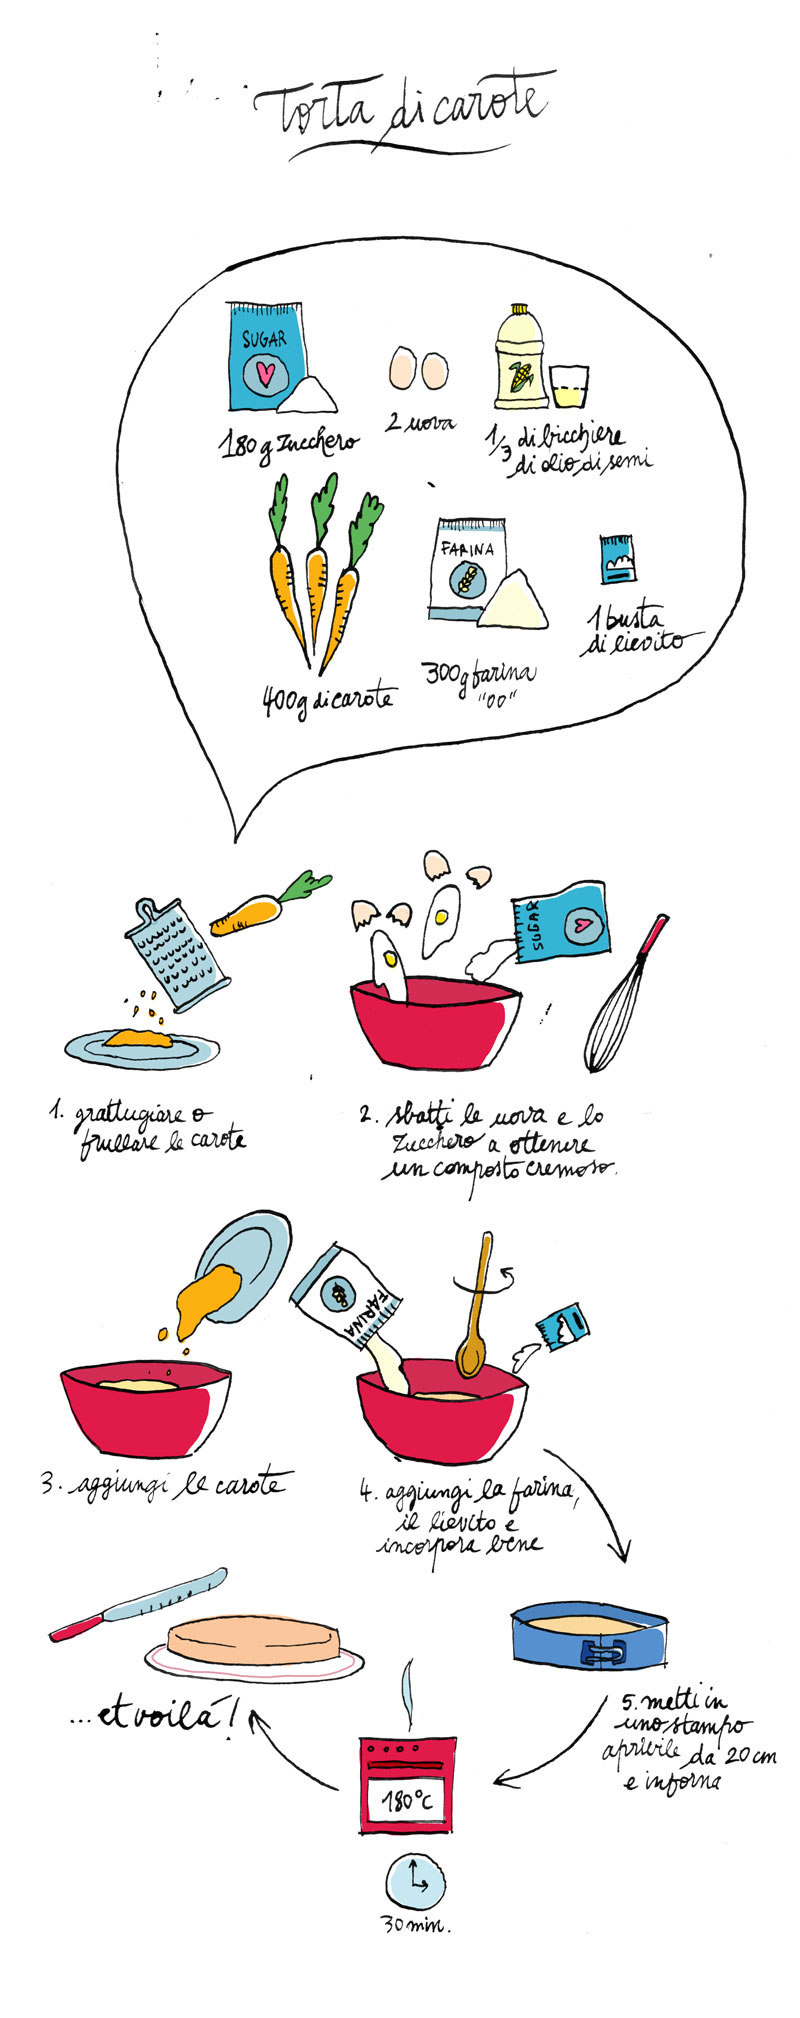 Torta di carote
SUGAR
180g zucchero
2 uova
1/3 di bicchiere
di olio di semi
400g di carote
FARINA
300g farina
"00"
1 busta
di lievito
SUGAR
1. grattugiare o
frullare le carote
2. sbatti le uova e lo
zucchero a ottenere
un composto cremoso.
FARINA
3. aggiungi le carote
4. aggiungi la farina,
il lievito e
incorpora bene
5. metti in
uno stampo
apribile da 20 cm
e inforna
180°C
30 min.
...et voilá!